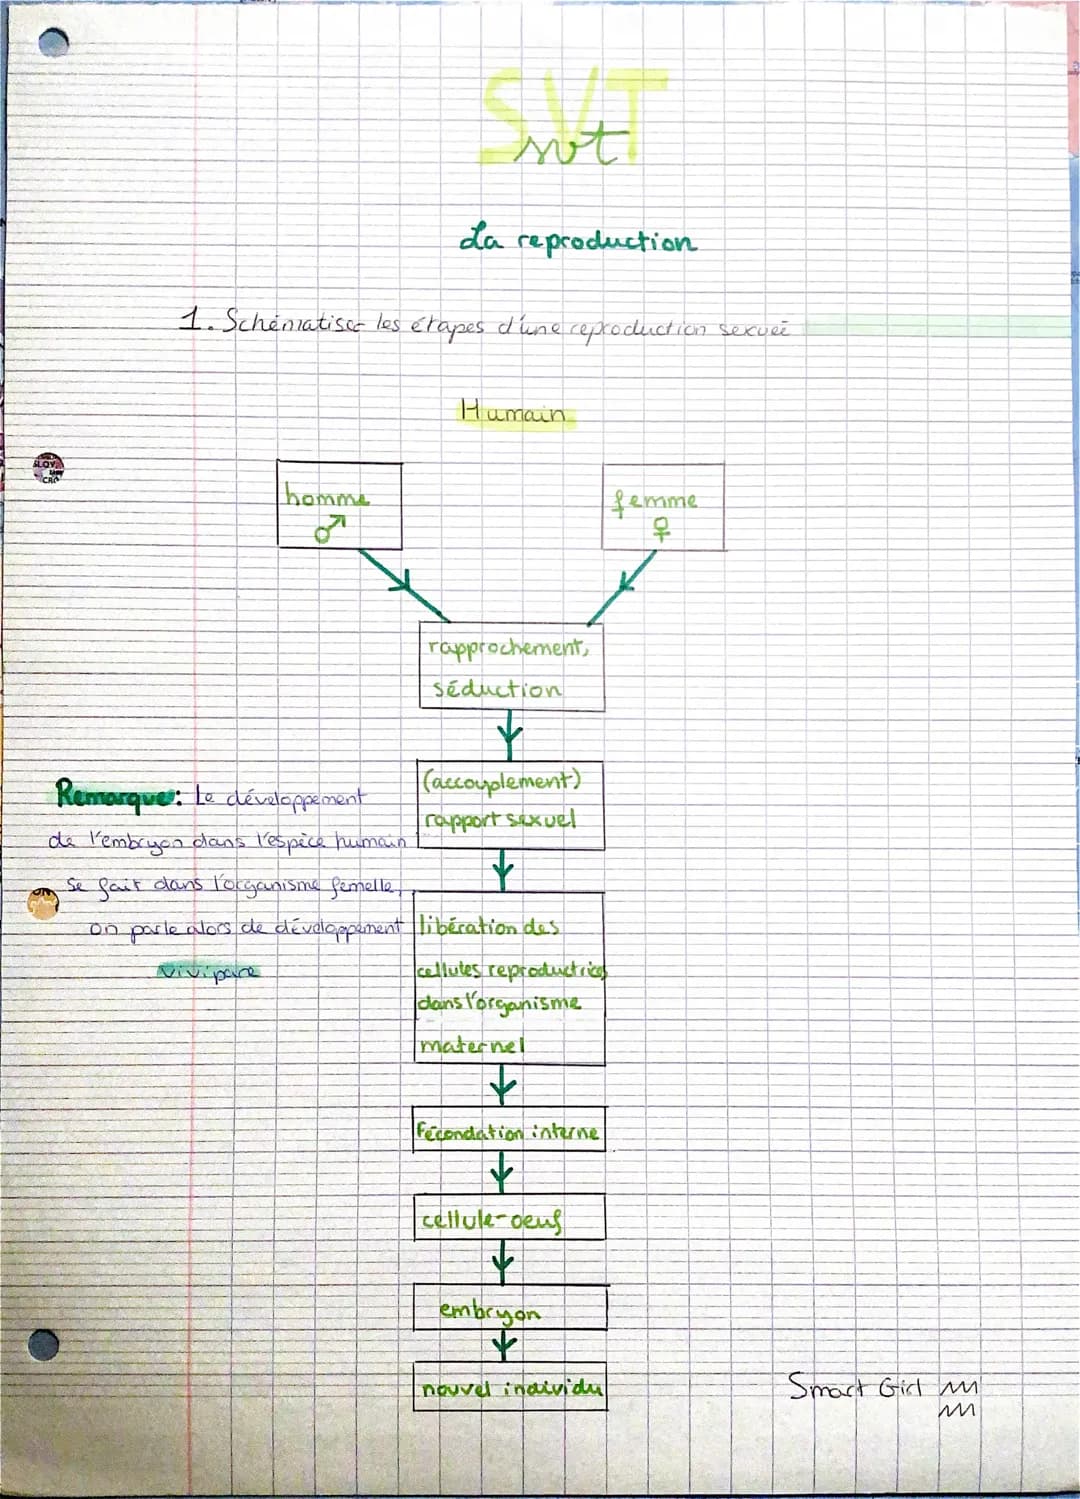 SVT
svt
La reproduction
1. Schématiser les étapes d'une reproduction sexuée
Humain
homme
♂
femme
♀
rapprochement,
séduction
(accouplement)
rapport sexuel
Remarque: Le développement
de l'embryon dans l'espèce humain
se fait dans l'organisme femelle,
on parle alors de développement
vivipare
libération des
cellules reproductrices
dans l'organisme
maternel
Fécondation interne
cellule-oeuf
embryon
nouvel individu
Smart Girl